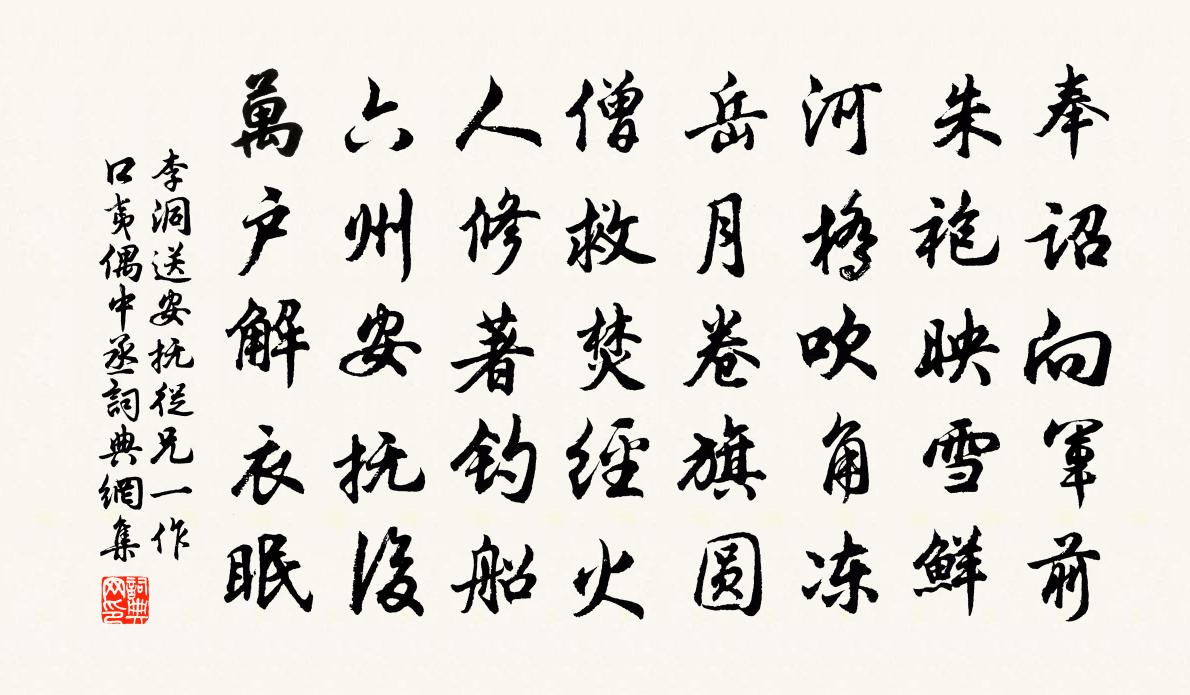 奉詔向軍前
朱袍映雪鮮
河橋吹角凍
岳月卷旗圓
僧救焚經火
人修著釣船
六州安抚後
萬户解衣眠
李洞送安抚從兄一作
口夷偶中丞詞典網集
詞典網印